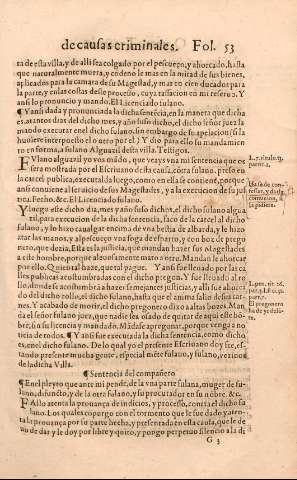 de causas criminales. Fol. 53
ra de esta villa, y de alli sea colgado por el pescueço, y ahorcado, hasta
que naturalmente muera, y cōdeno le mas en la mitad de sus bienes,
aplicados para la camara de su Magestad, y mas en cien ducados para
la parte, y en las costas deste processo, cuya tassacion en mi reseruo. Y
ansi lo pronuncio y mando. El Licenciado fulano.
¶ Y ansi dada y pronunciada la dicha sentēcia, en la manera que dicha
es, atantos dias del dicho mes, y año suso dicho, el dicho señor juez la
mando executar en el dicho fulano, sin embargo de su apelacion (si la
huuiere interpuesto el o otro por el.) Y dio para ello su mandamien
to en forma, a fulano Alguazil desta villa. Testigos.
FVlano alguazil yo vos mādo, que veays vna mi sentencia que os
sera mostrada por el Escriuano de sta causa, cōtra fulano, preso en
la carcel publica, executad la luego, como en ella se contiene, porque
ansi conuiene al seruicio de sus Magestades, y a la execucion de su jus
tica. Fecho. &c. El Licenciado fulano.
Y luego este dicho dia, mes y año suso dichos, el dicho fulano algua
zil, para execucion de la dicha sentencia, saco de la carcel al dicho
fulano, y lo hizo caualgar encima de vna bestia de albarda, y le hizo
atar las manos, y al pescueço vna soga de esparto, y con boz de prego
nero, que dezia, Esta es la justicia, que mandan hazer sus Magestades
a este hombre, porque aleuosamente mato a otro. Mandan le ahorcar
por ello. Quien tal haze, que tal pague. Y ansi fue lleuado por las ca
lles publicas acostumbradas con el dicho pregon. Y fue lleuado al ro
llo, donde se acostumbra a hazer semejantes justicias, y alli fue ahorca
do del dicho rollo, el dicho fulano, hasta que el anima salio de sus car
nes. Y acabado de morir, el dicho pregonero dixo a altas bozes. Man
da el señor fulano juez, que nadie sea osado de quitar de aqui este hō-
bre, sin su licencia y mandado. Mādase apregonar, porque venga a no
ticia de todos. ¶ Y ansi fue executada la dicha sentencia, como dicho
es, en el dicho fulano. De lo qual yo el presente Escriuano doy fee, es-
tando presente mucha gente, especial mēte fulano, y fulano, vezinos
de la dicha Villa.
¶ Sentencia del compañero
¶ En el pleyto que ante mi pende, de la vna parte fulana, muger de fu-
lano, difuncto, y de la otra fulano, y su procurador en su nōbre. &c.
FAllo atenta la prouança de indicios, y processo, contra el dicho fu
lano. Los quales compurgo con el tormento que le fue dado y aten-
ta la prouança por su parte hecha, y presentada en esta causa, que le de
uo de dar y doy por libre y quito, y pongo perpetuo silencio a la di
G 3
El pregonero